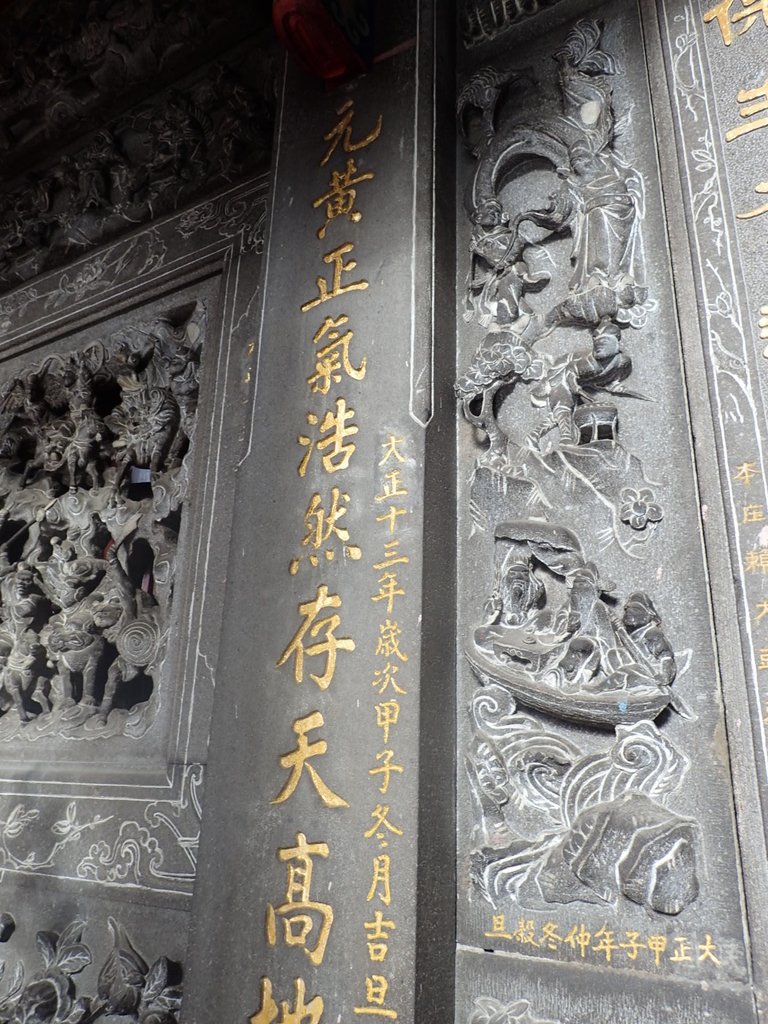 本庄
元黃正氣浩然存天高地
大正十三年歲次甲子冬月吉旦
大正甲子年仲冬穀旦